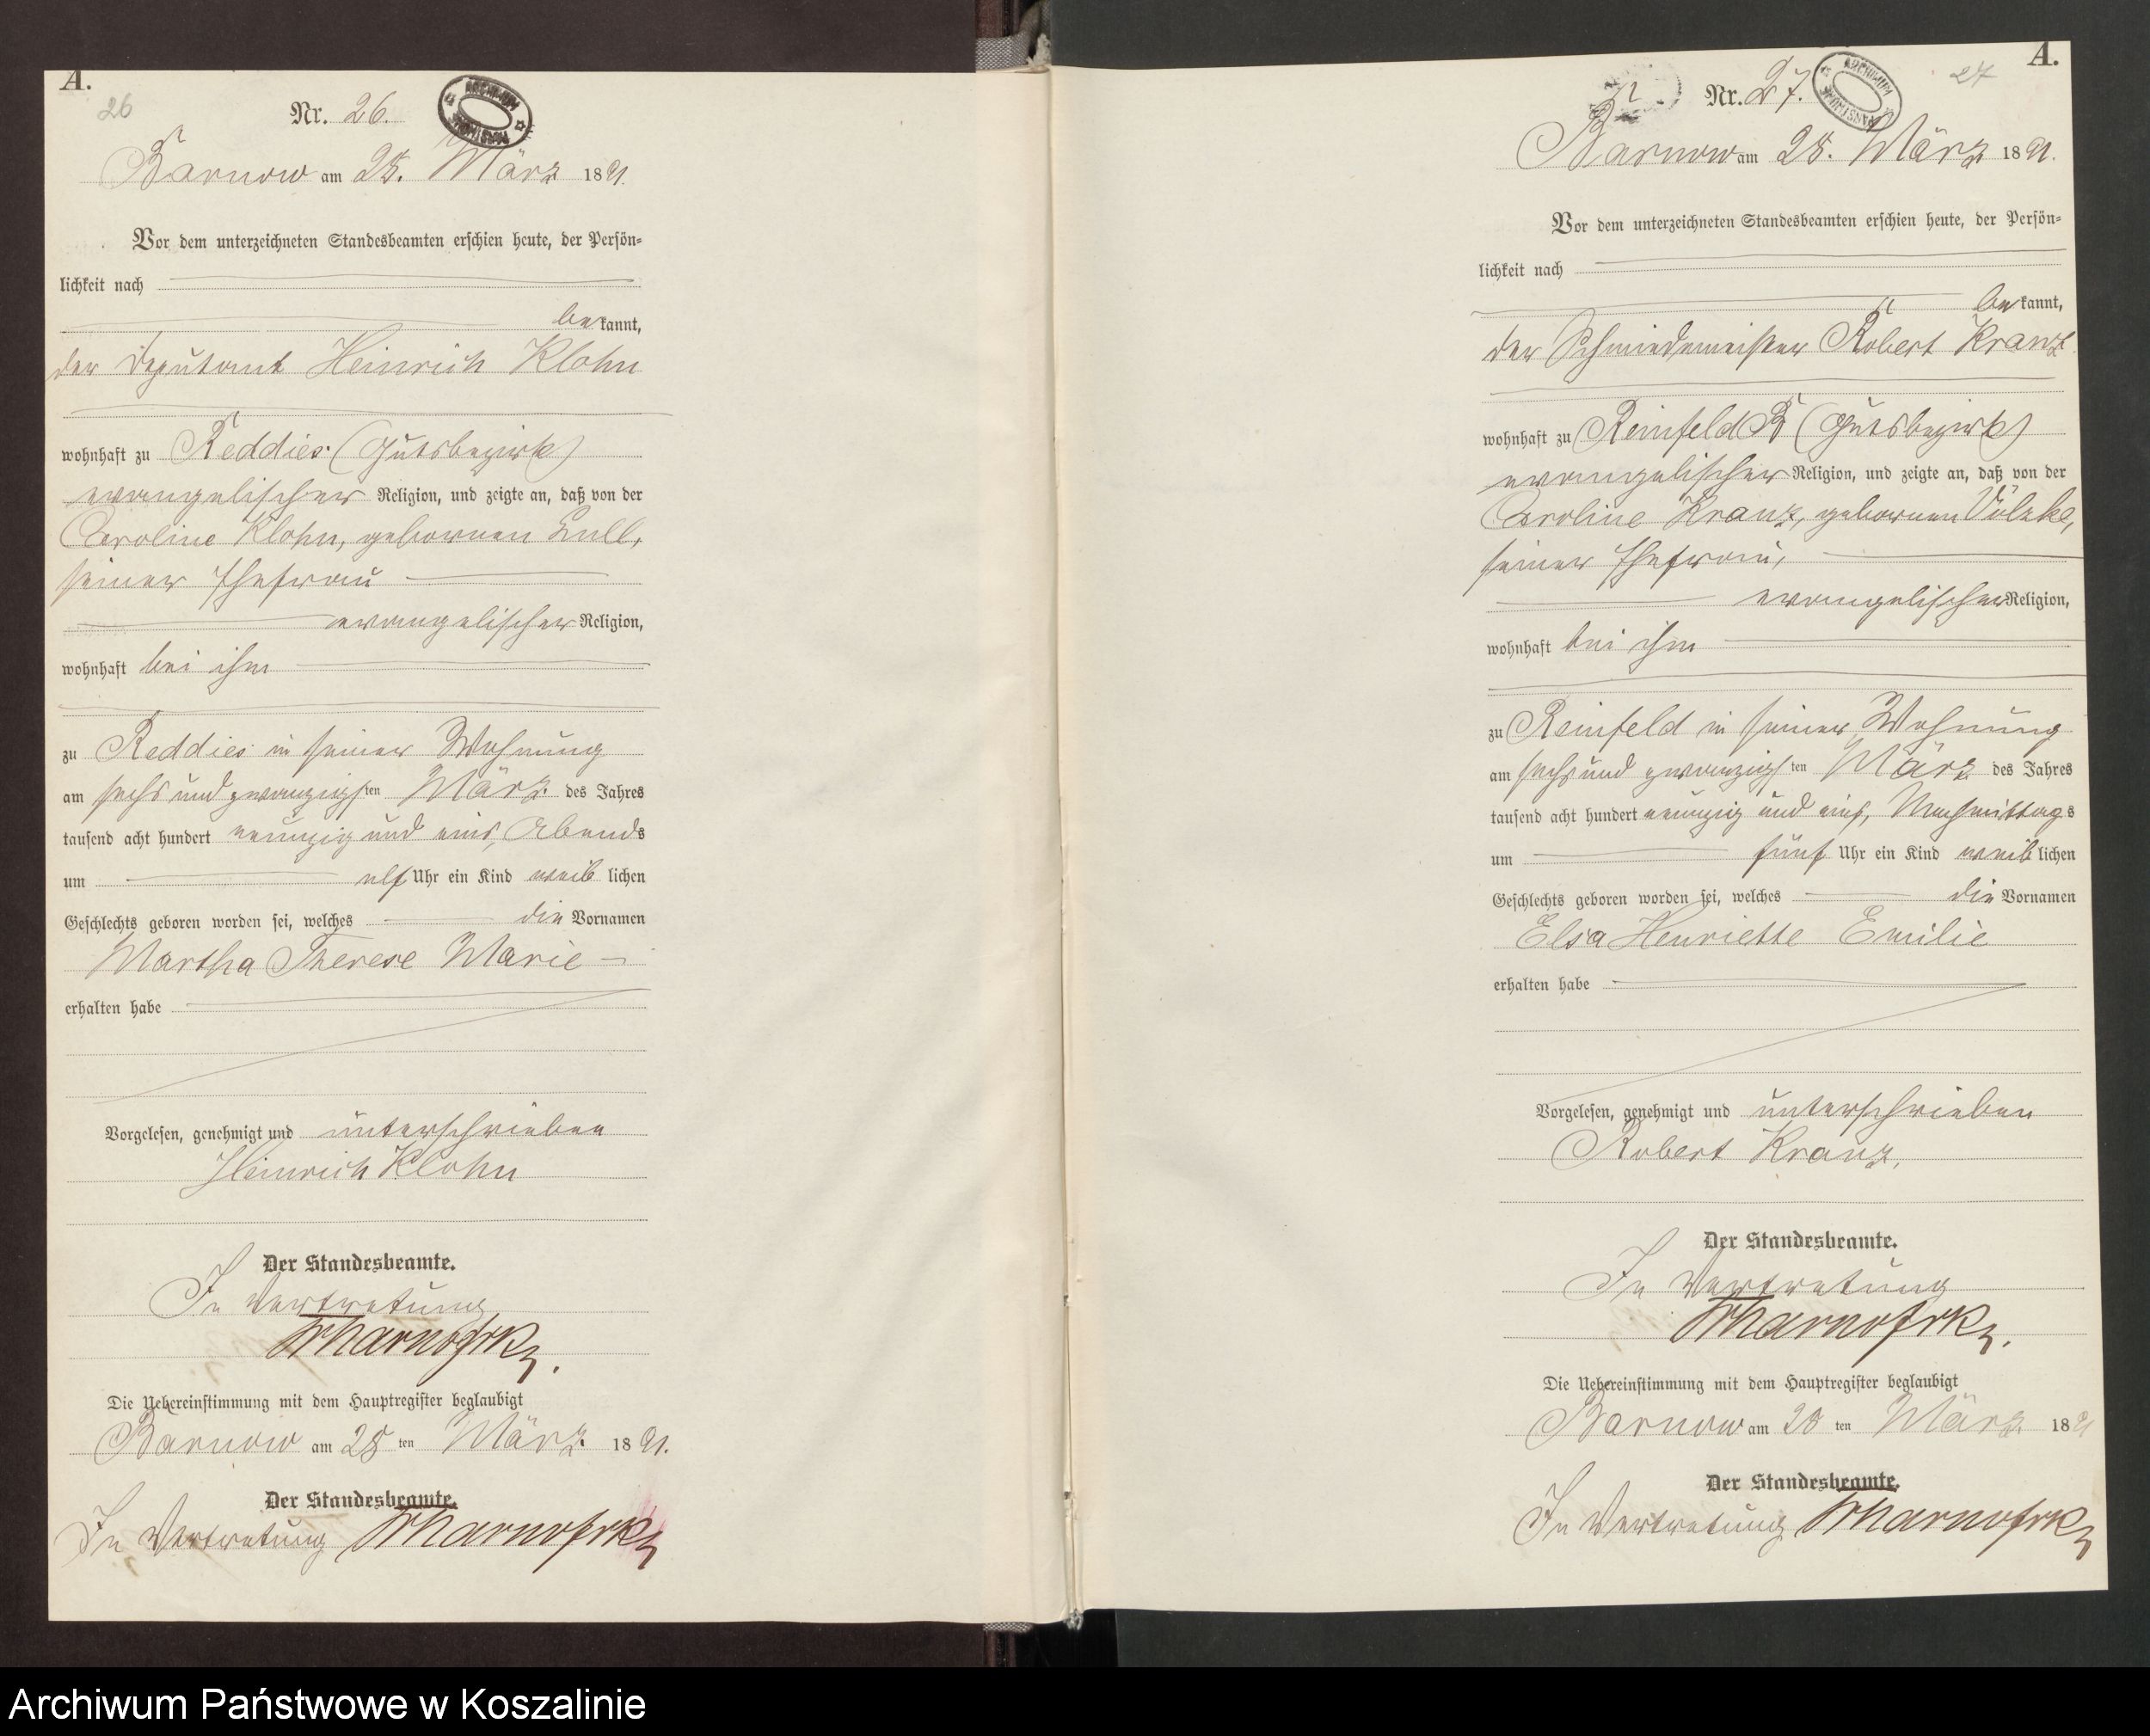 A.
26
Nr. 26.
ARCHIWUM PAŃSTWOWE
Barnow am 28. März 1891.
Vor dem unterzeichneten Standesbeamten erschien heute, der Persön=
lichkeit nach
bekannt,
der Deputant Heinrich Klohn
wohnhaft zu Reddies (Gutsbezirk)
evangelischer Religion, und zeigte an, daß von der
Caroline Klohn, geborenen Lull,
seiner Ehefrau
evangelischer Religion,
wohnhaft bei ihm
zu Reddies in seiner Wohnung
am sechs und zwanzigsten März des Jahres
tausend acht hundert neunzig und eins, Abends
um elf Uhr ein Kind weiblichen
Geschlechts geboren worden sei, welches die Vornamen
Martha Therese Marie
erhalten habe
Vorgelesen, genehmigt und unterschrieben
Heinrich Klohn
Der Standesbeamte.
In Vertretung
Die Uebereinstimmung mit dem Hauptregister beglaubigt
Barnow am 28ten März 1891.
Der Standesbeamte.
In Vertretung
A.
27
Nr. 27.
ARCHIWUM PAŃSTWOWE
Barnow am 28. März 1891.
Vor dem unterzeichneten Standesbeamten erschien heute, der Persön=
lichkeit nach
bekannt,
der Schmiedemeister Robert Kranz
wohnhaft zu Reinfeld (Gutsbezirk)
evangelischer Religion, und zeigte an, daß von der
Caroline Kranz, geborenen Völzke,
seiner Ehefrau,
evangelischer Religion,
wohnhaft bei ihm
zu Reinfeld in seiner Wohnung
am sechs und zwanzigsten März des Jahres
tausend acht hundert neunzig und eins, Nachmittags
um fünf Uhr ein Kind weiblichen
Geschlechts geboren worden sei, welches die Vornamen
Elsa Henriette Emilie
erhalten habe
Vorgelesen, genehmigt und unterschrieben
Robert Kranz.
Der Standesbeamte.
In Vertretung
Die Uebereinstimmung mit dem Hauptregister beglaubigt
Barnow am 28ten März 1891
Der Standesbeamte.
In Vertretung
Archiwum Państwowe w Koszalinie